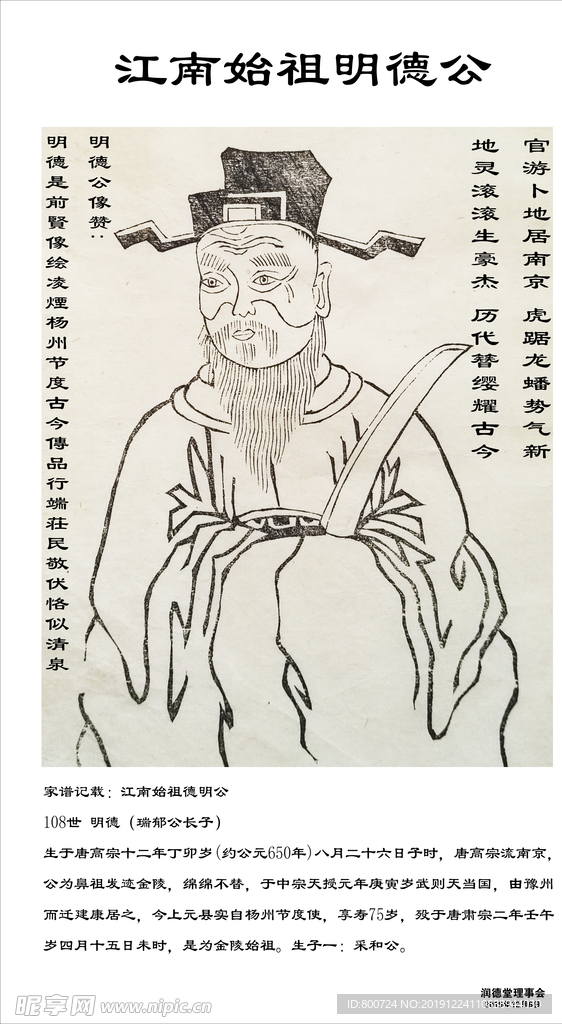 江南始祖明德公
官游卜地居南京 虎踞龙蟠势气新
地灵滚滚生豪杰 历代簪缨耀古今
明德公像赞:
明德是前賢像绘凌煙杨州节度古今傳品行端莊民敬伏恪似清泉
家谱记载:江南始祖德明公
108世 明德(瑞郁公长子)
生于唐高宗十二年丁卯岁(约公元650年)八月二十六日子时,唐高宗流南京,
公为鼻祖发迹金陵,绵绵不替,于中宗天授元年庚寅岁武则天当国,由豫州
而迁建康居之,今上元县实自杨州节度使,享寿75岁,殁于唐肃宗二年壬午
岁四月十五日未时,是为金陵始祖。生子一:采和公。
润德堂理事会
昵享网 www.nipic.cn